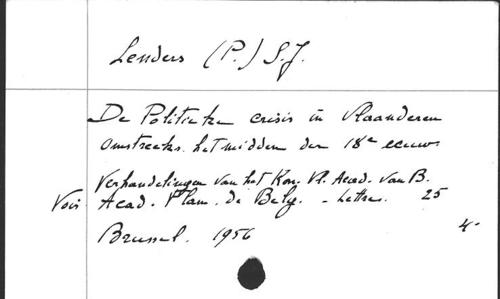 Lenders (P.) S.J.
De Politieke crisis in Vlaanderen
omstreeks het midden der 18e eeuw
Verhandelingen van het Kon. Vl. Acad. van B.
Voir Acad. Flam. de Belg. - Lettres. 25
Brussel. 1956
4-